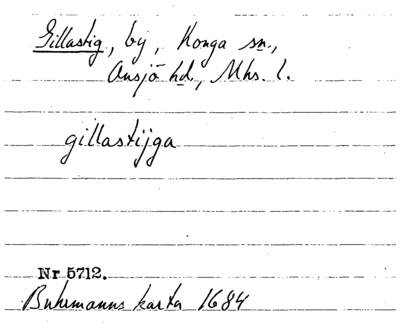 Gillastig, by, Konga sn.,
Onsjö hd., Mhs. l.
gillastijga
Nr 5712.
Buhrmanns karta 1684